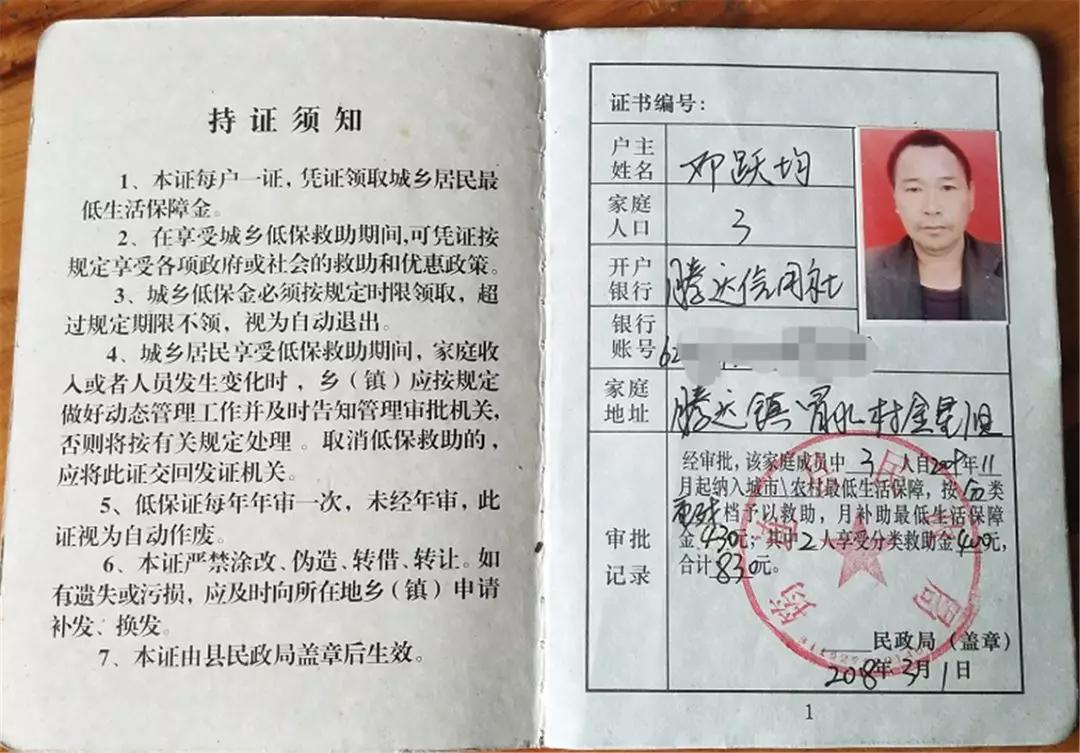 持证须知
1、本证每户一证,凭证领取城乡居民最
低生活保障金。
2、在享受城乡低保救助期间,可凭证按
规定享受各项政府或社会的救助和优惠政策。
3、城乡低保金必须按规定时限领取，超
过规定期限不领，视为自动退出。
4、城乡居民享受低保救助期间，家庭收
入或者人员发生变化时，乡（镇）应按规定
做好动态管理工作并及时告知管理审批机关,
否则将按有关规定处理。取消低保救助的，
应将此证交回发证机关。
5、低保证每年年审一次，未经年审，此
证视为自动作废。
6、本证严禁涂改、伪造、转借、转让。如
有遗失或污损，应及时向所在地乡（镇）申请
补发、换发。
7、本证由县民政局盖章后生效。
证书编号：
户主
姓名
邓跃均
家庭
人口
3
开户
银行
腾达信用社
银行
账号
62
家庭
地址
腾达镇 村金星组
审批
记录
经审批，该家庭成员中 3 人自 年11
月起纳入城市\农村最低生活保障，按 分 类
重残 档予以救助，月补助最低生活保障
金 430元；其中2人享受分类救助金400元，
合计830元。
民政局（盖章）
2018年3月1日
1